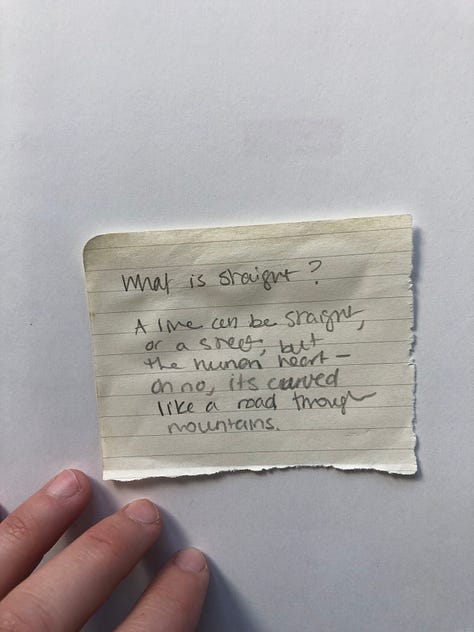 What is straight?
A line can be straight,
or a street, but
the human heart—
oh no, its curved
like a road through
mountains.